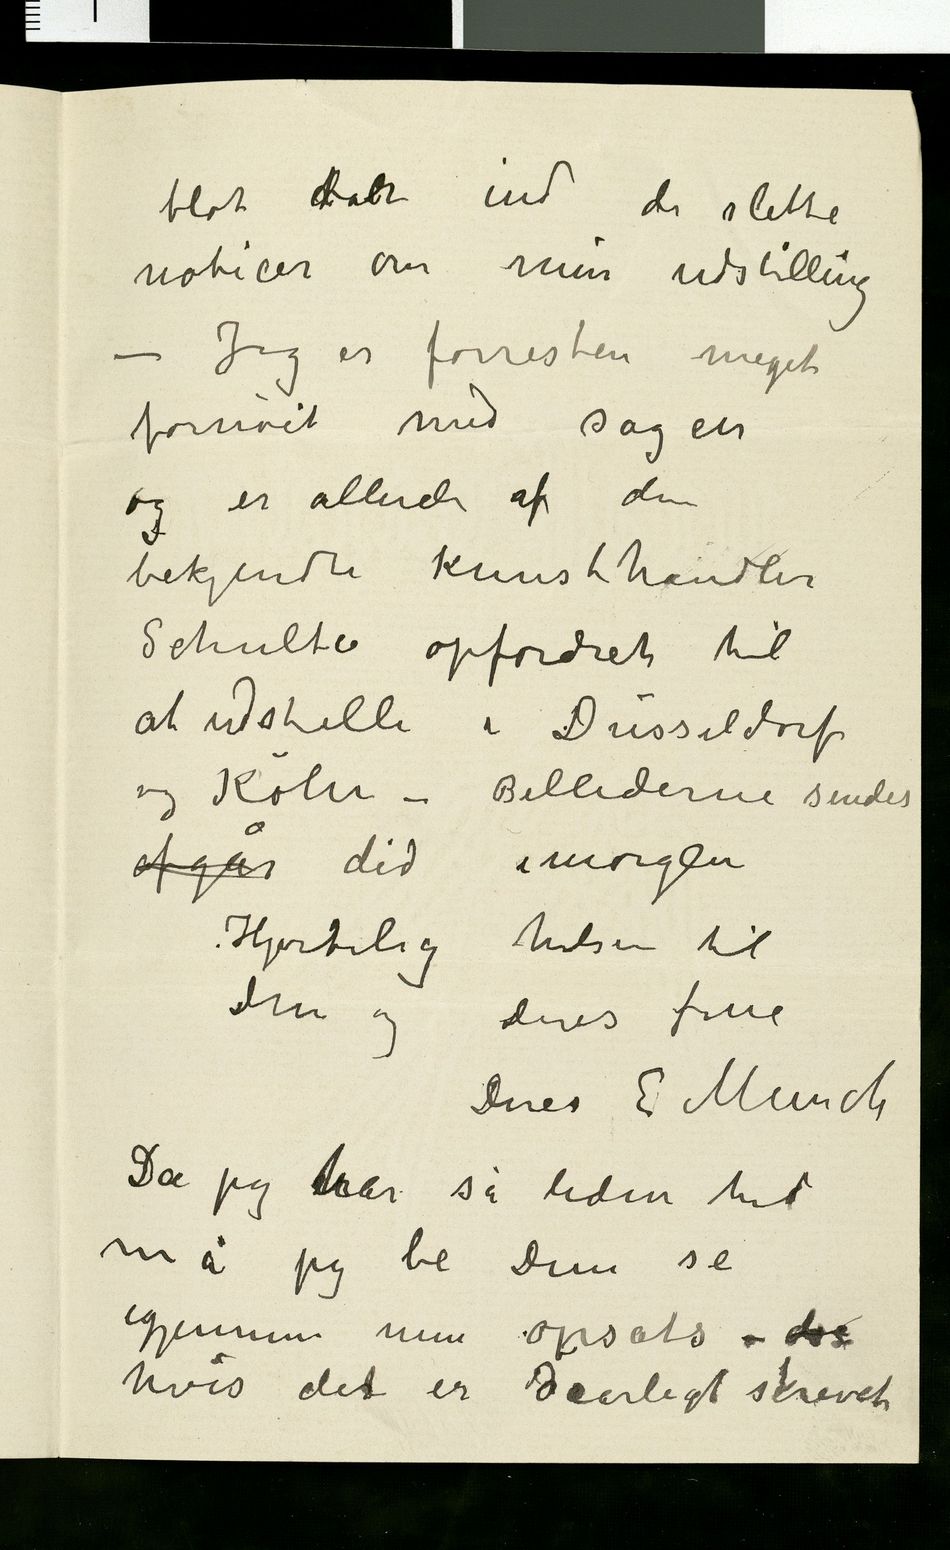 blot tat ind de slette
noticer om min udstilling
— Jeg er forresten meget
fornöit med sagen
og er allerede af den
bekjendte Kunsthandler
Schulte opfordret til
at udstille i Düsseldorf
og Köln – Billederne sendes
afgår did imorgen
Hjertelig hilsen til
Dem og Deres frue
Deres E Munch
Da jeg har så liden tid
må jeg be Dem se
igjennem min opsats –
hvis det er Daarligt skrevet